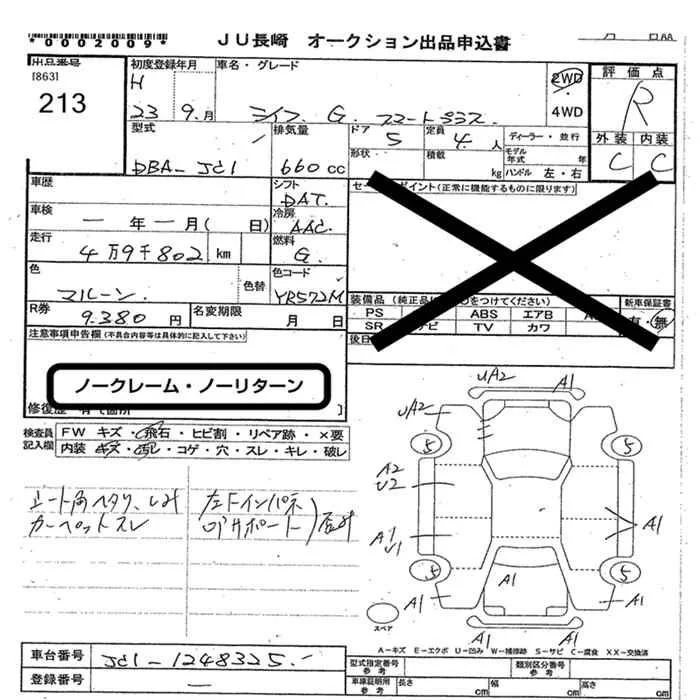 *0002009*
JU長崎 オークション出品申込書
出品番号
[863]
213
初度登録年月
H
23 9.月
車名・グレード
ライフ G. スマートプラス
2WD
4WD
評価点
R
型式
DBA-JC1
排気量
660 cc
ドア 5
形状
定員 4 人
積載 kg
ディーラー・並行
モデル年式 年
ハンドル 左・右
外装 内装
C C
車歴
シフト
DAT.
車検
一年一月( 日)
冷房
AAC.
走行
4万9千802 km
燃料
G.
色
マルーン.
色替
色コード
YR572M
R券
9.380 円
名変期限
月 日
(正常に機能するものに限ります)
装備品
PS ABS エアB
SR TV カワ
新車保証書
有・無
注意事項申告欄(不具合内容等は具体的に記入して下さい)
ノークレーム・ノーリターン
検査員
記入欄
FW キズ・飛石・ヒビ割・リペア跡・×要
内装・キズ・汚レ・コゲ・穴・スレ・キレ・破レ
シート角ヘタリ、シミ
カーペットスレ
左Fインパネ
UA2 A1
UA2
5 5
A2
U2
A1
U1
A1
5 5
A1
A1 A1
A1 A1
スペア
A-キズ E-エクボ U-凹み W-補修跡 S-サビ C-腐食 XX-交換済
車台番号
JC1-1248325.
登録番号
一
型式指定番号
参考
類別区分番号
参考
車庫証明用
参考
長さ cm
幅 cm
高さ cm